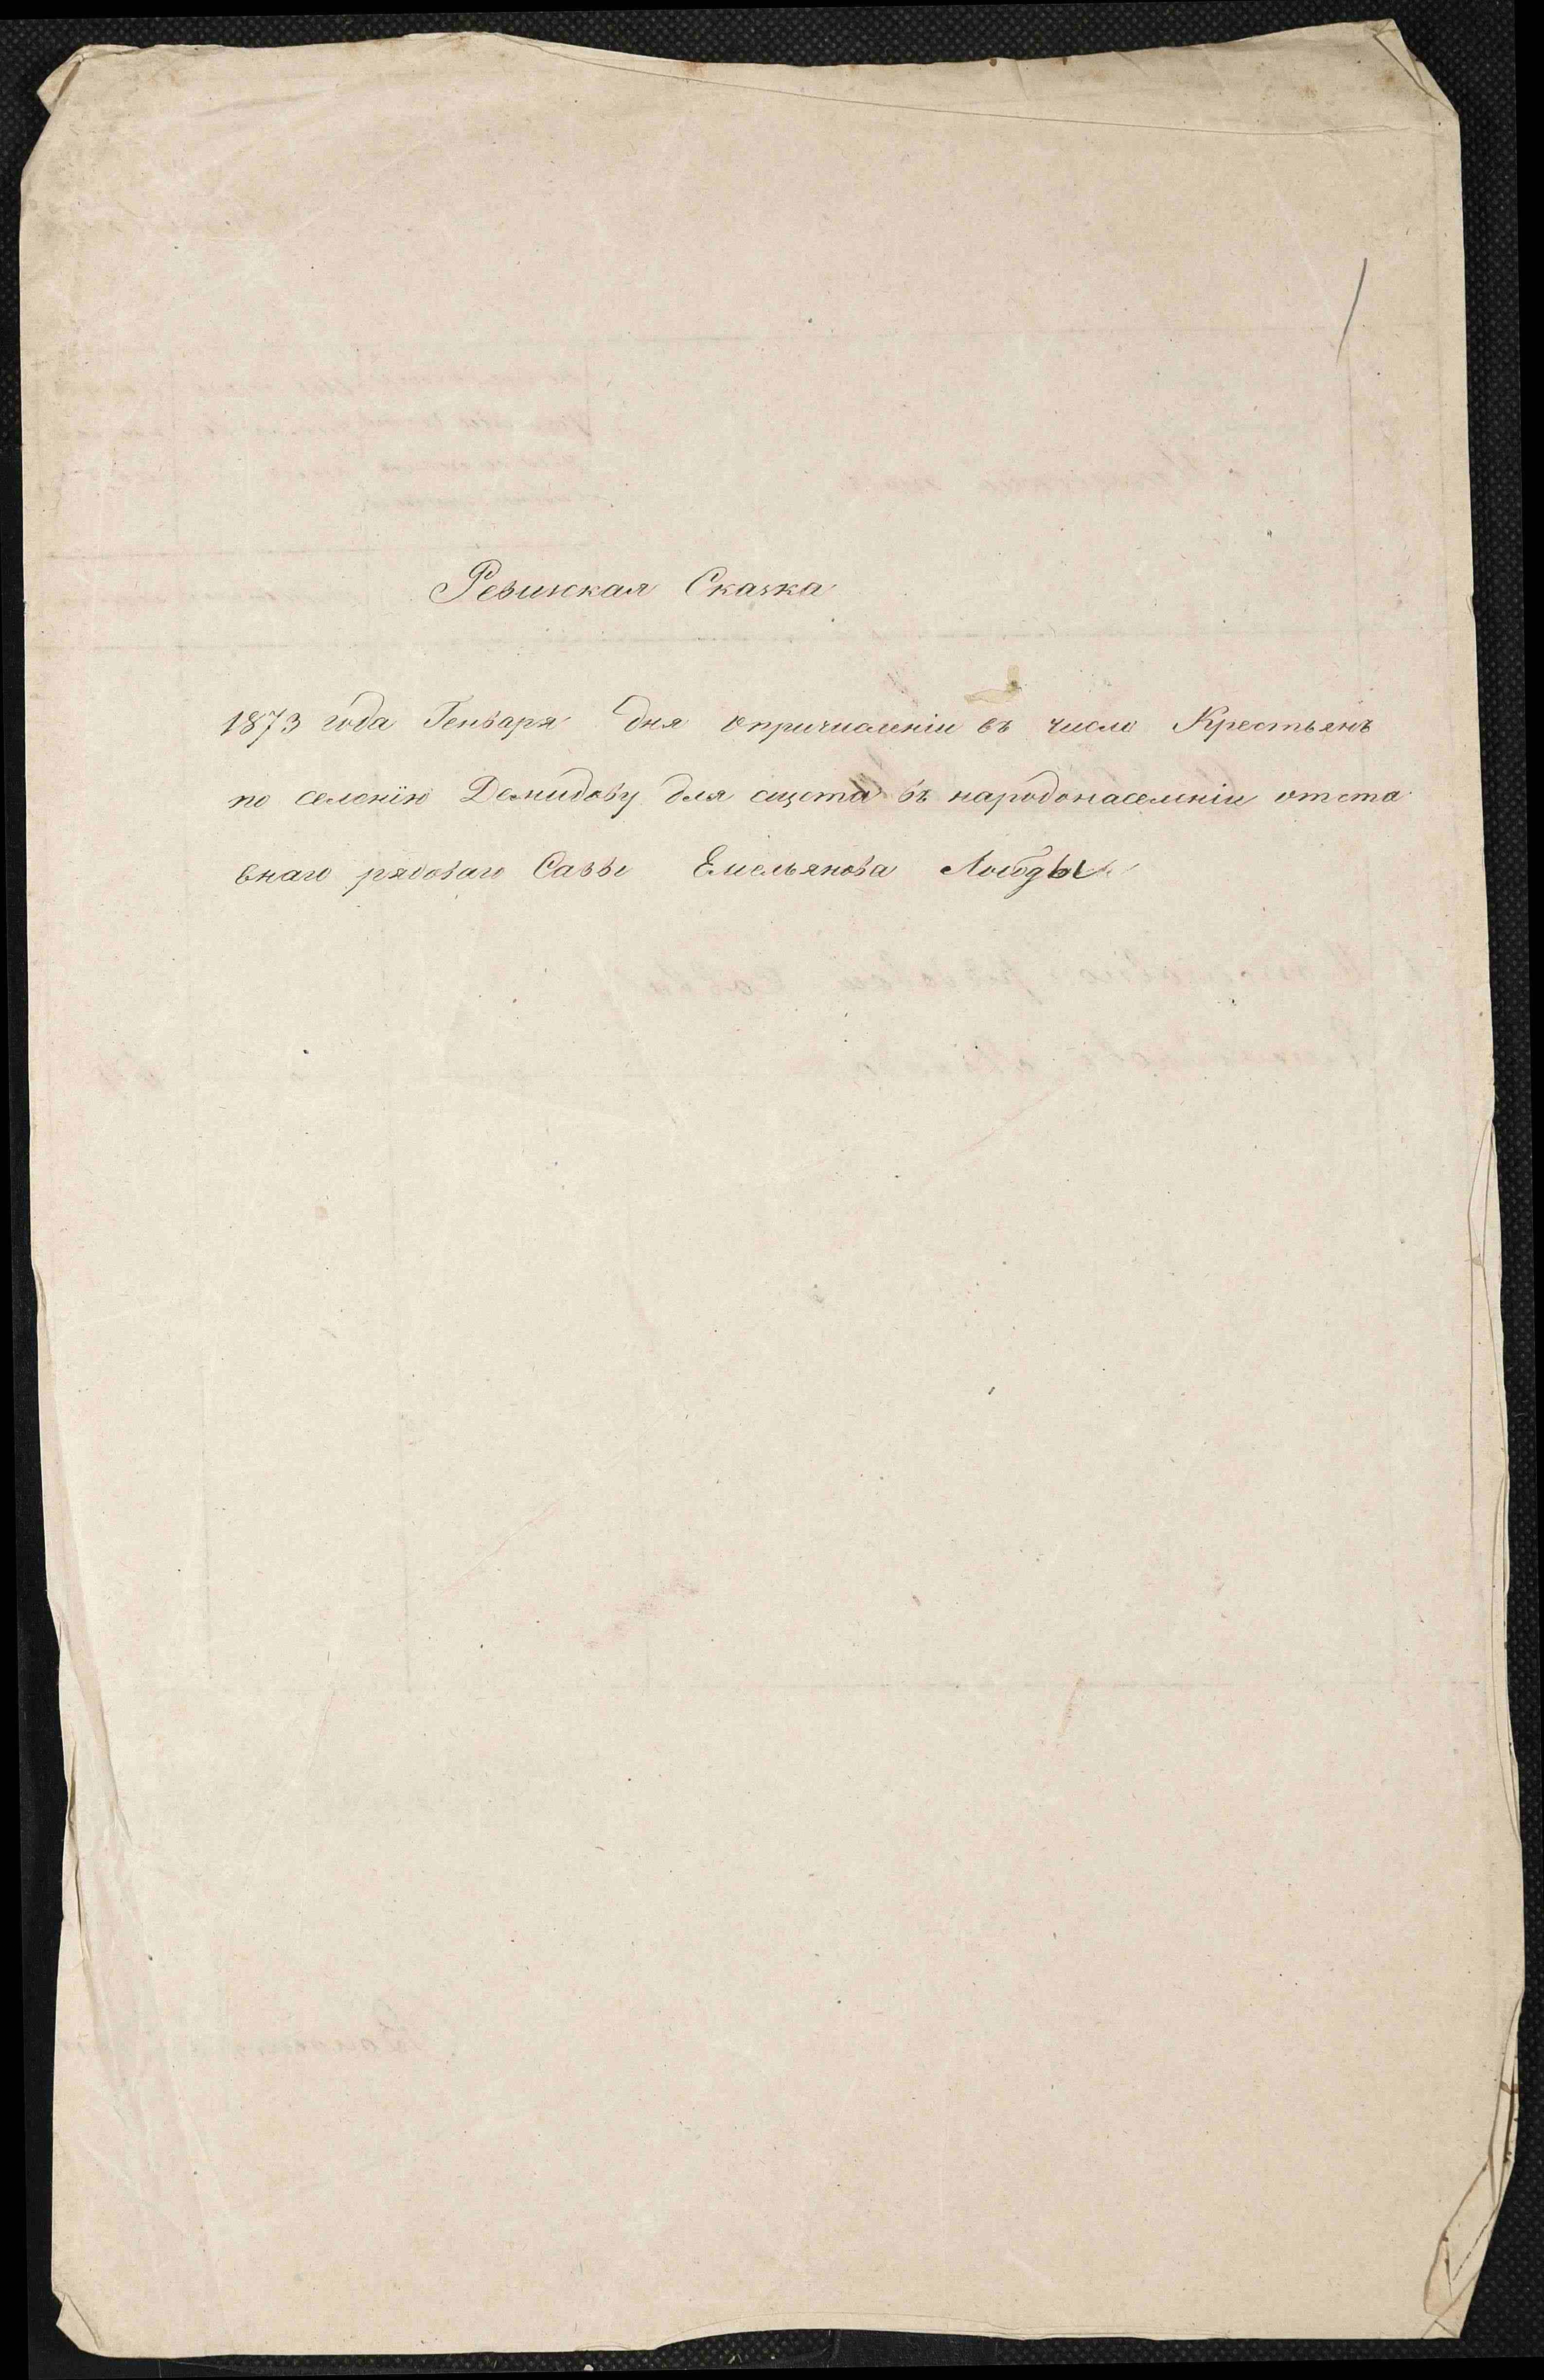 Ревизская Сказка
1873 года Генваря дня опричислении въ число Крестьянъ
по селенiю Демидову для сщета въ народонаселенiи отста
внаго рядоваго Саввы Емельянова Лободы